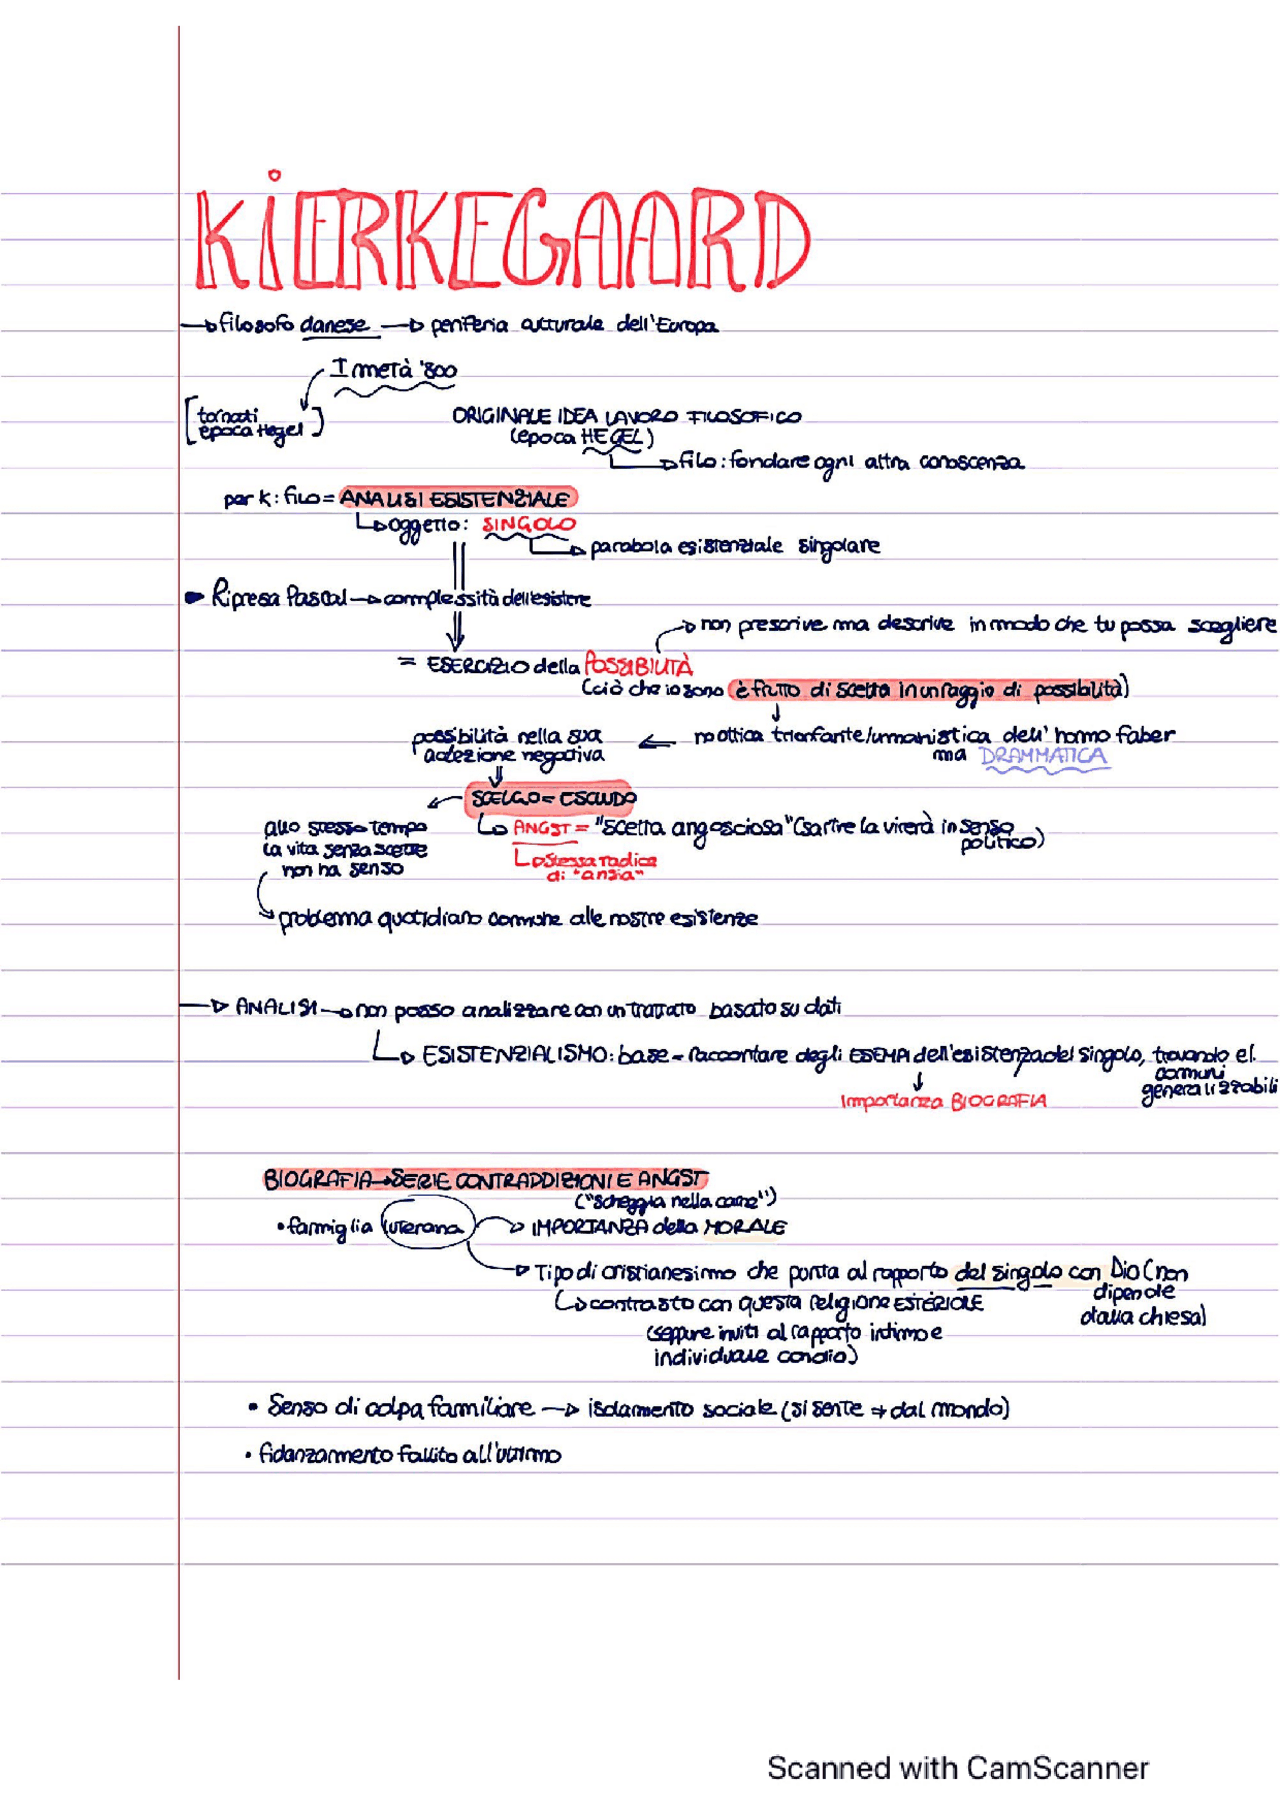 KiERKEGAARD
→ filosofo danese → periferia culturale dell'Europa
I metà '800
[tornati epoca Hegel]
ORIGINALE IDEA LAVORO FILOSOFICO
(epoca HEGEL)
→ filo: fondare ogni altra conoscenza
per K: filo = ANALISI ESISTENZIALE
↳ oggetto: SINGOLO
→ parabola esistenziale singolare
Ripresa Pascal → complessità dell'esistere
→ non prescrive ma descrive in modo che tu possa scegliere
= ESERCIZIO della POSSIBILITÀ
(ciò che io sono è frutto di scelta in un raggio di possibilità)
no ottica trionfante/umanistica dell'homo faber
ma DRAMMATICA
possibilità nella sua
accezione negativa
SCELGO = ESCLUDO
↳ ANGST = "scelta angosciosa" (sartre la virerà in senso
politico)
↳ stessa radice
di "ansia"
allo stesso tempo
la vita senza scelte
non ha senso
problema quotidiano comune alle nostre esistenze
→ ANALISI → non posso analizzare con un trattato basato su dati
↳ ESISTENZIALISMO: base = raccontare degli ESEMPI dell'esistenza del singolo, trovando el.
comuni
generalizzabili
importanza BIOGRAFIA
BIOGRAFIA → SERIE CONTRADDIZIONI E ANGST
("scheggia nella carne")
• famiglia luterana → IMPORTANZA della MORALE
→ Tipo di cristianesimo che punta al rapporto del singolo con Dio (non
dipende
dalla chiesa)
↳ contrasto con questa religione ESTERIORE
(seppure inviti al rapporto intimo e
individuale con dio)
• Senso di colpa familiare → isolamento sociale (si sente ≠ dal mondo)
• fidanzamento fallito all'ultimo
Scanned with CamScanner